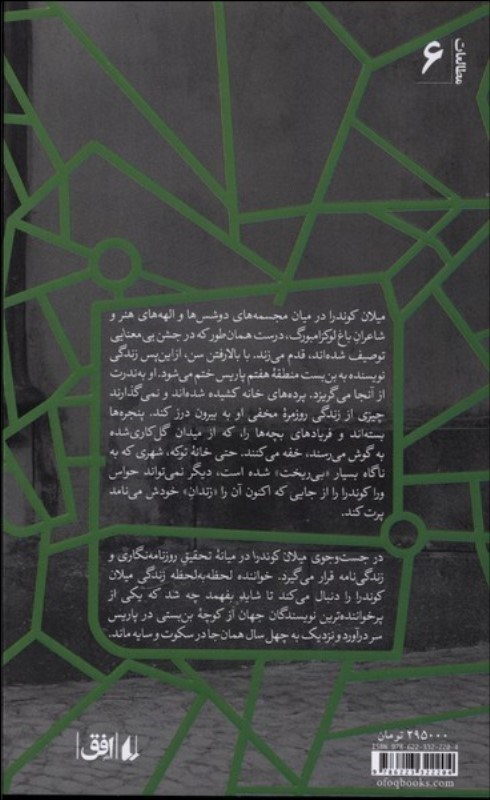 مطالعات
۶
میلان کوندرا در میان مجسمه‌های دوشس‌ها و الهه‌های هنر و
شاعران باغ لوکزامبورگ، درست همان‌طور که در جشن بی‌معنایی
توصیف شده‌اند، قدم می‌زند. با بالارفتن سن، ازاین‌پس زندگی
نویسنده به بن‌بست منطقهٔ هفتم پاریس ختم می‌شود. او به‌ندرت
از آنجا می‌گریزد. پرده‌های خانه کشیده شده‌اند و نمی‌گذارند
چیزی از زندگی روزمرهٔ مخفی او به بیرون درز کند. پنجره‌ها
بسته‌اند و فریادهای بچه‌ها را، که از میدان گل‌کاری‌شده
به گوش می‌رسند، خفه می‌کنند. حتی خانهٔ توکه، شهری که به
ناگاه بسیار «بی‌ریخت» شده است، دیگر نمی‌تواند حواس
ورا کوندرا را از جایی که اکنون آن را «زندان» خودش می‌نامد
پرت کند.
در جست‌وجوی میلان کوندرا در میانهٔ تحقیق روزنامه‌نگاری و
زندگی‌نامه قرار می‌گیرد. خواننده لحظه‌به‌لحظه زندگی میلان
کوندرا را دنبال می‌کند تا شاید بفهمد چه شد که یکی از
پرخواننده‌ترین نویسندگان جهان از کوچهٔ بن‌بستی در پاریس
سر درآورد و نزدیک به چهل سال همان‌جا در سکوت و سایه ماند.
۲۹۵۰۰۰ تومان
ISBN 978-622-332-228-4
9786223322284
ofoqbooks.com
افق